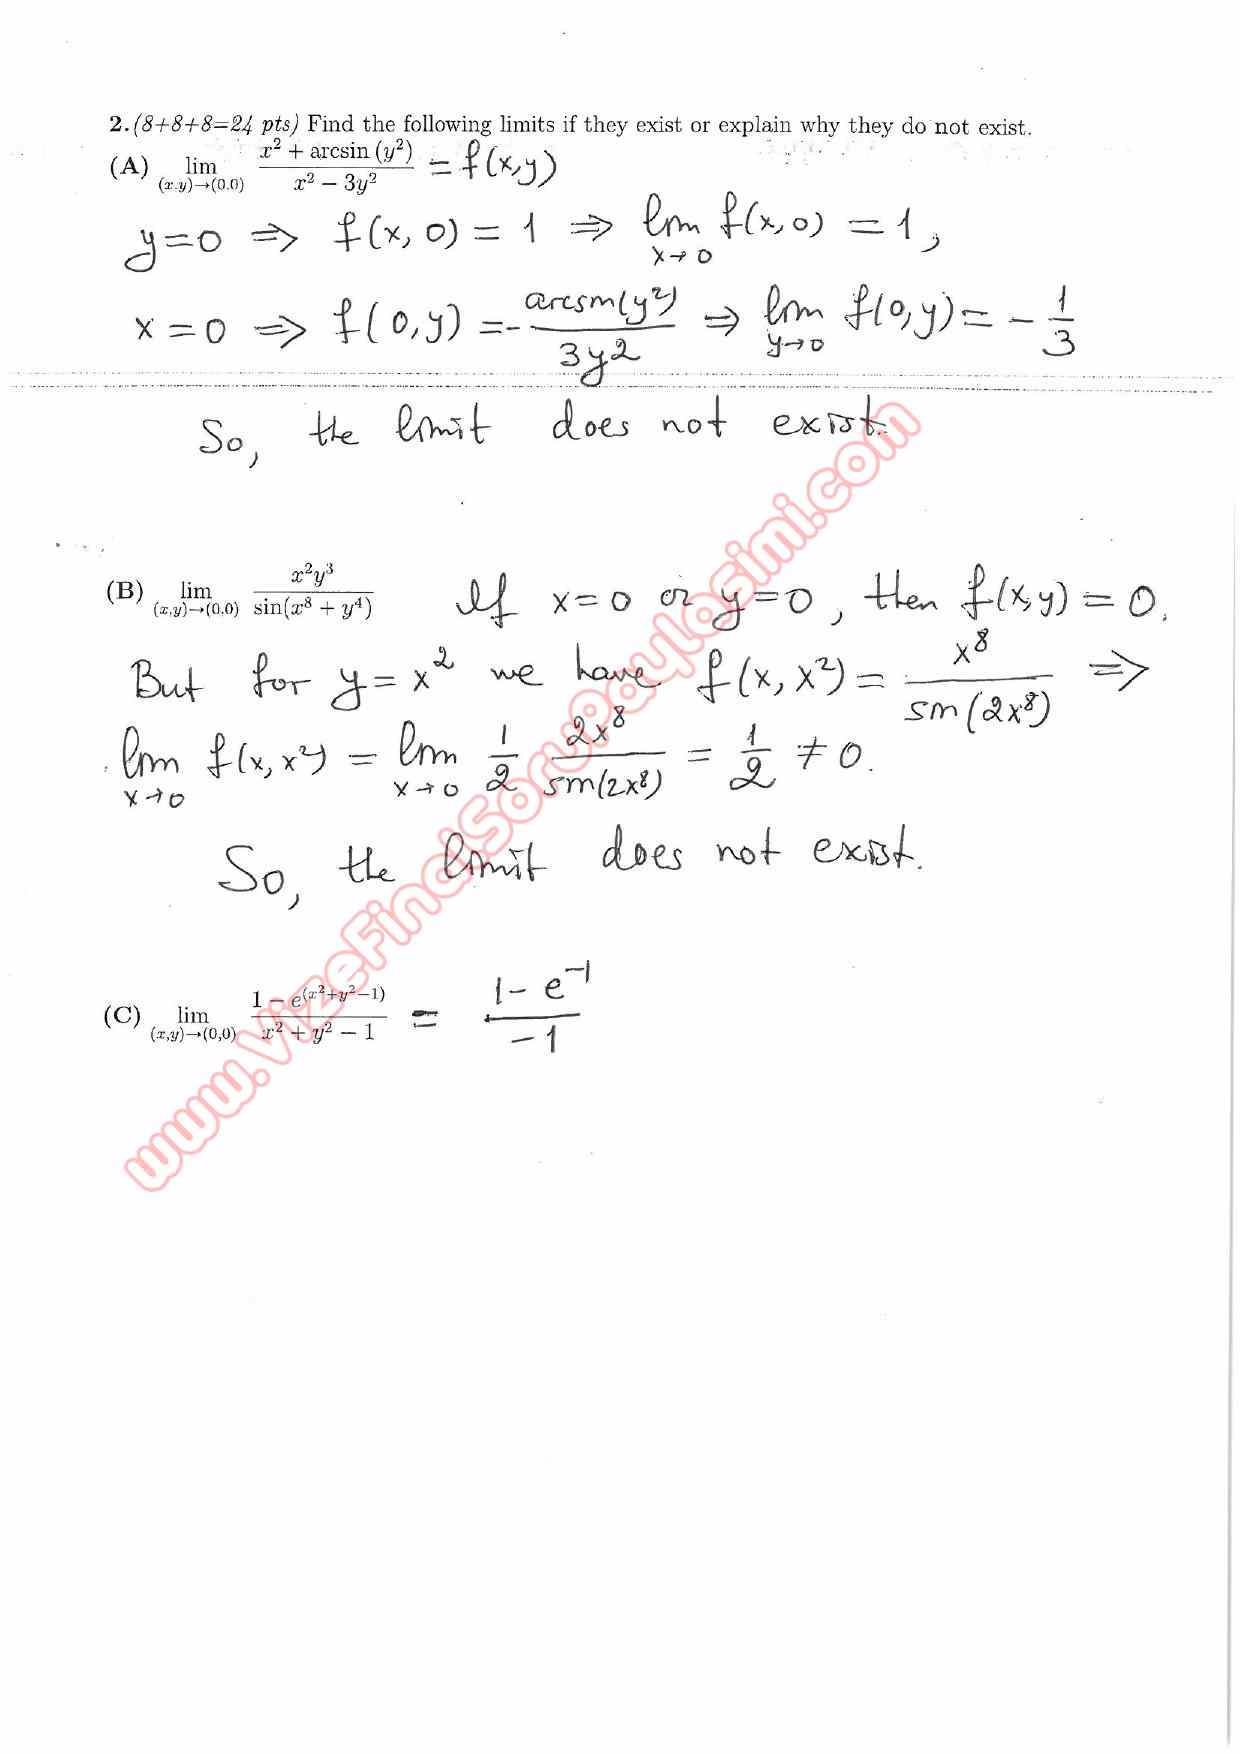 2. (8+8+8=24 pts) Find the following limits if they exist or explain why they do not exist.
(A) lim_{(x,y)→(0,0)} (x² + arcsin (y²))/(x² − 3y²) = f(x,y)
y=0 ⇒ f(x,0) = 1 ⇒ lim_{x→0} f(x,0) = 1,
x=0 ⇒ f(0,y) = - arcsin(y²)/3y² ⇒ lim_{y→0} f(0,y) = - 1/3
So, the limit does not exist.
(B) lim_{(x,y)→(0,0)} x²y³/sin(x⁸ + y⁴) If x=0 or y=0, then f(x,y) = 0.
But for y=x² we have f(x,x²) = x⁸/sin(2x⁸) ⇒
lim_{x→0} f(x,x²) = lim_{x→0} 1/2 2x⁸/sin(2x⁸) = 1/2 ≠ 0.
So, the limit does not exist.
(C) lim_{(x,y)→(0,0)} (1 − e^{(x²+y²−1)})/(x² + y² − 1) = (1 - e^{-1})/-1
www.VizeFinalSoruPaylasimi.com